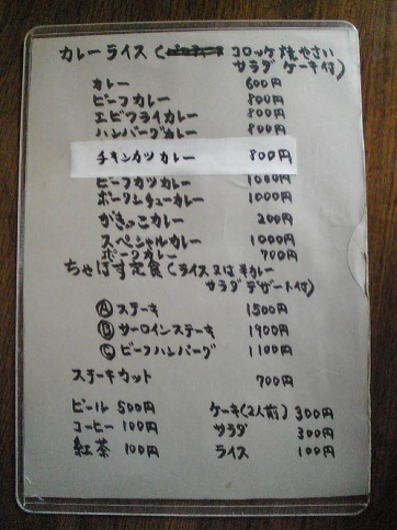 カレーライス( コロッケ 焼やさい
サラダ ケーキ付)
カレー 600円
ビーフカレー 800円
エビフライカレー 800円
ハンバーグカレー 800円
チキンカツカレー 800円
ビーフカツカレー 1000円
ポークシチューカレー 1000円
がきっこカレー 200円
スペシャルカレー 1000円
ポークカレー 700円
ちゃばす定食(ライス又は半カレー
サラダ デザート付)
Ⓐ ステーキ 1500円
Ⓑ サーロインステーキ 1900円
Ⓒ ビーフハンバーグ 1100円
ステーキカット 700円
ビール 500円 ケーキ(2人前) 300円
コーヒー 100円 サラダ 300円
紅茶 100円 ライス 100円